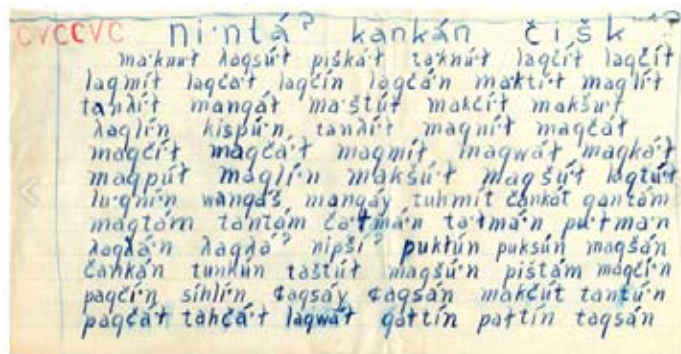 CVCCVC ni·ntá? kankán čišk
ma·knut λaqsút piškáɫ ta·knúɫ laqčíɫ laqčíɫ
laqmíɫ laqčaɫ laqčín laqčán maktíɫ maqlíɫ
tanλíɫ manqáɫ ma·štúɫ makčíɫ makšuɫ
λaqlín kispú·n tanλíɫ maqníɫ maqčáɫ
maqčíɫ maqčá·ɫ maqmíɫ maqwáɫ maqkáɫ
maqpúɫ maqlí·n makšúɫ maqšúɫ laqtúɫ
lu·qní·n wanqáš manqáy tuhmíɫ čankáɫ qantám
maqtám tantám ča·ɫmán ta·ɫmá·n pu·ɫma·n
λaqλá·n λaqλá? nipši? pukɫún puksún maqšán
čankán tunkún taštúɫ maqšú·n pištám maqčí·n
paqčí·n sihlí·n ¢aqsáy ¢aqsán makčúɫ tantú·n
paqčáɫ tahčá·ɫ laqwáɫ qaɫtín paɫtín taqsán